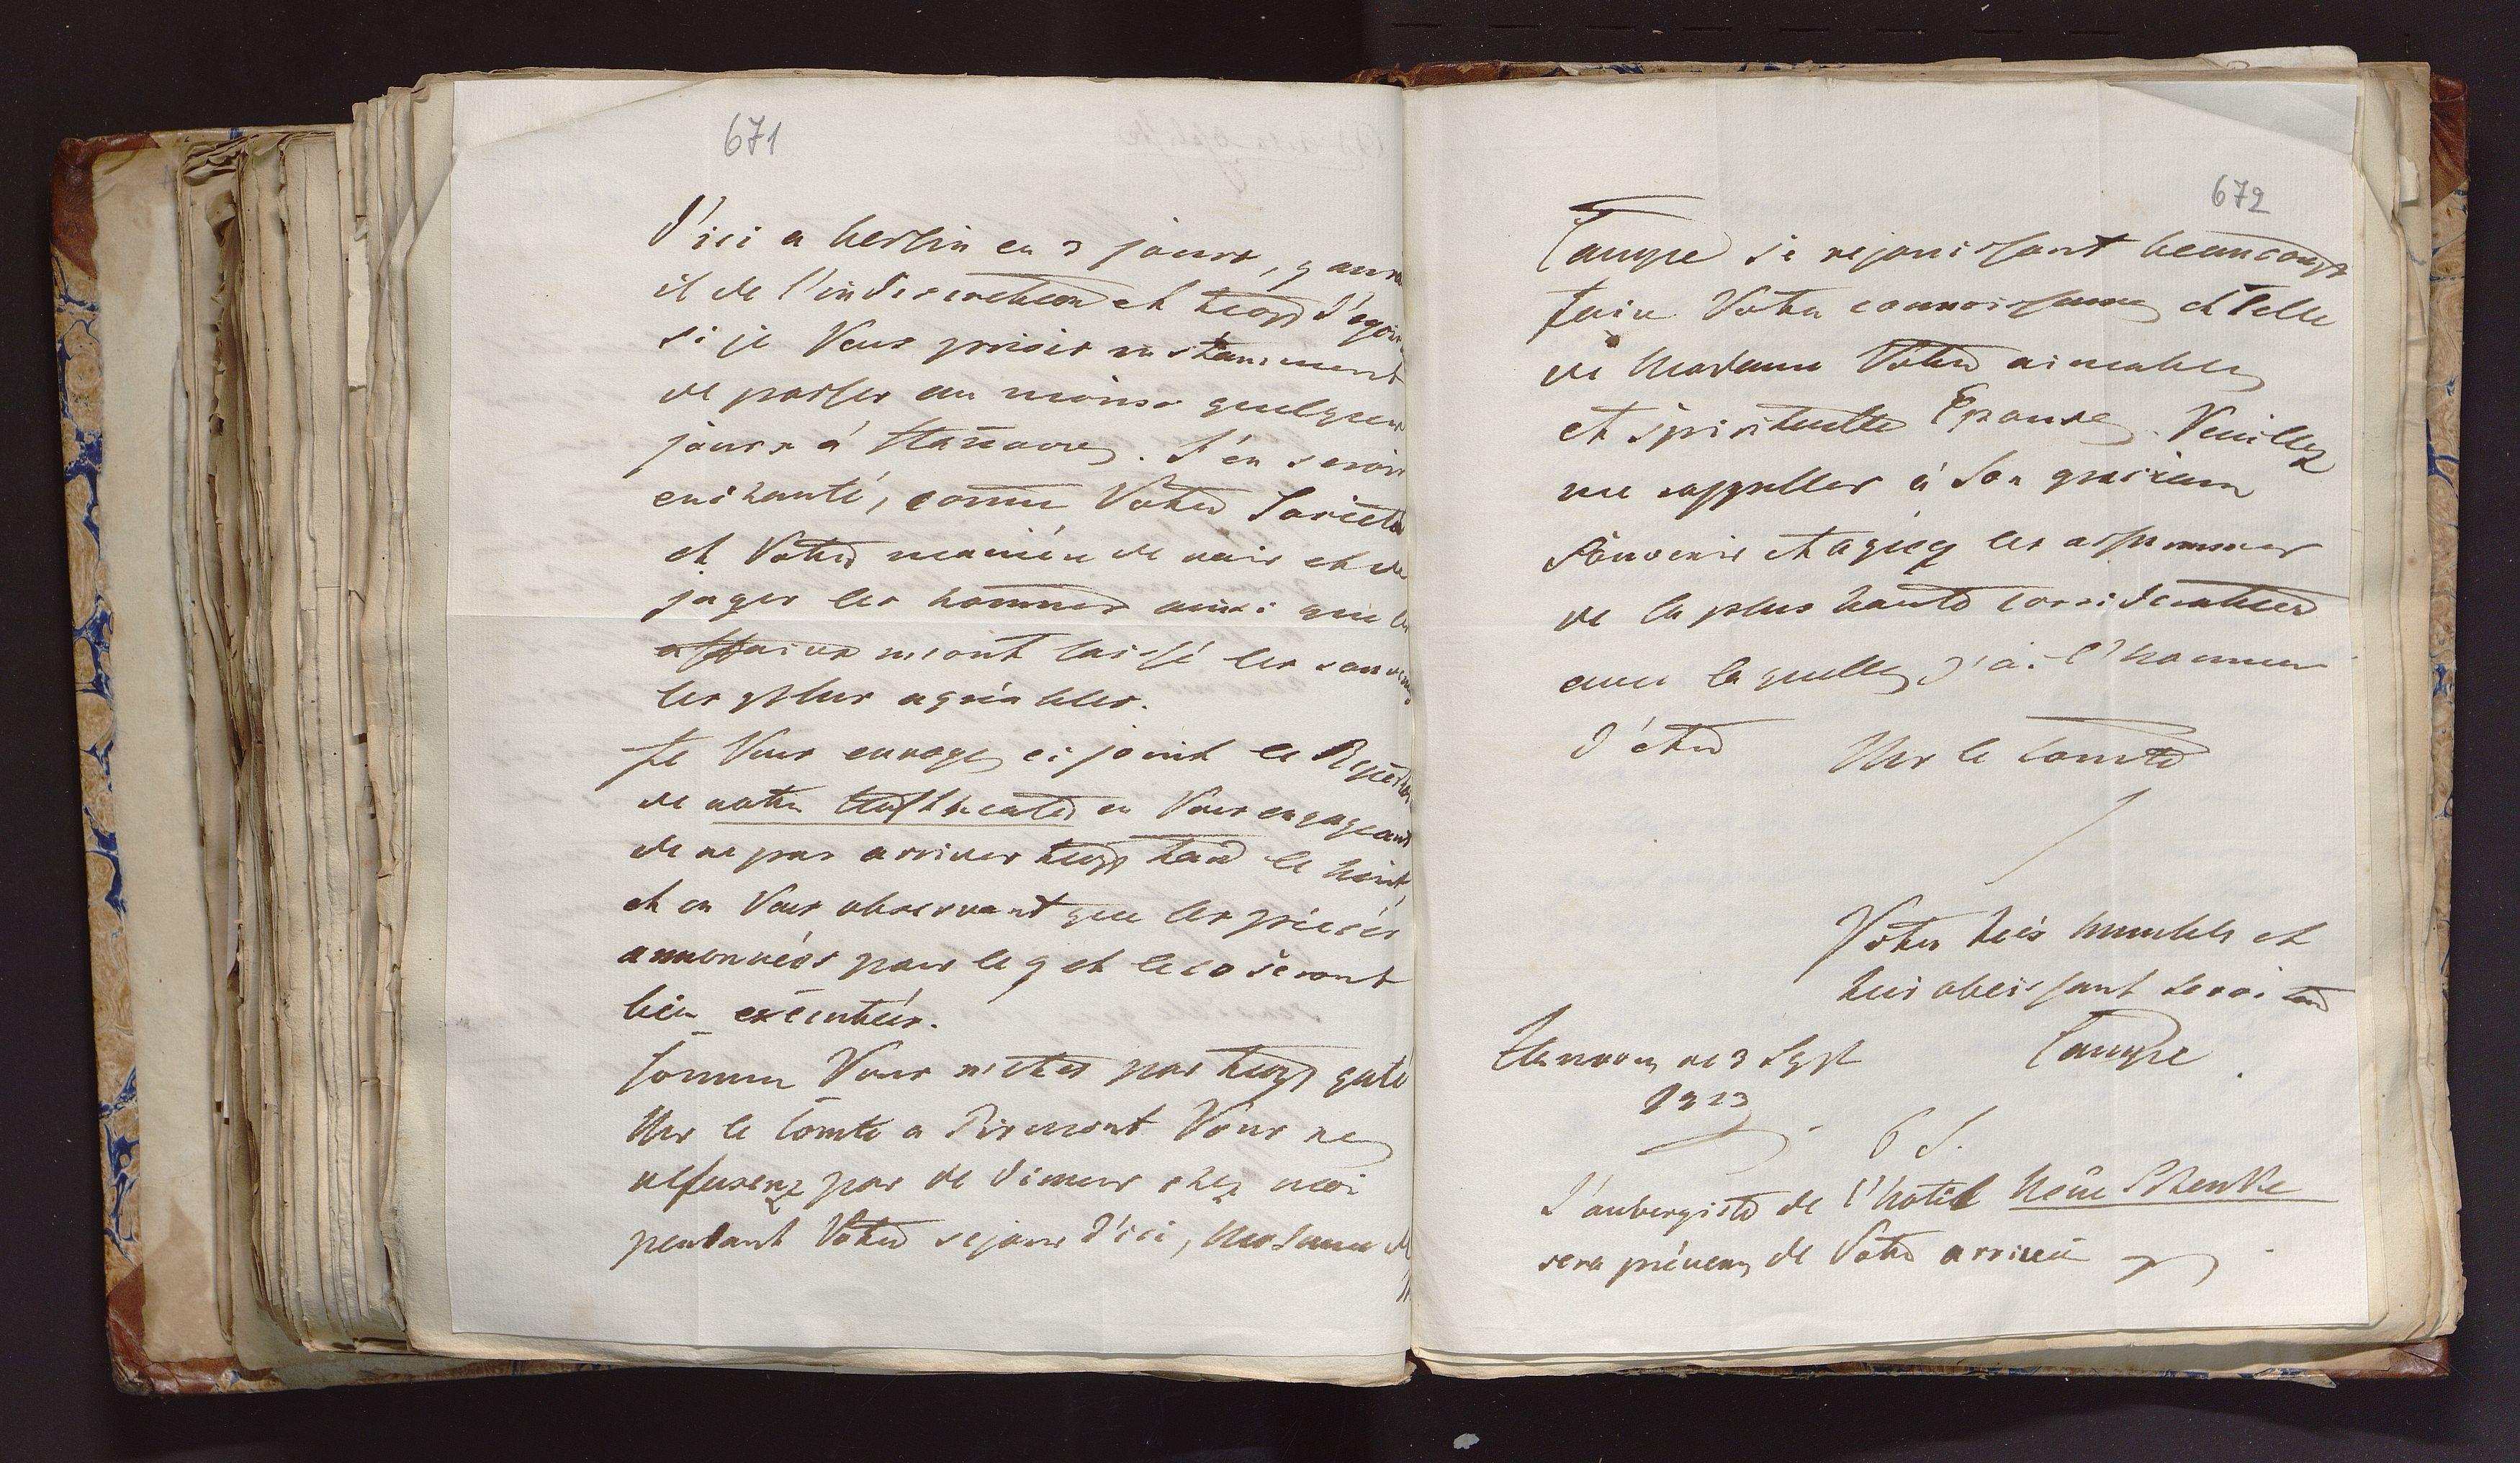 671
d'ici a berlin en 3 jours, y aura
il de l'indiscretion et trop d'egois
si je Vous priois instamment
de passer au moins quelques
jours á Hañovre. J'en serois
enchanté, come Votre Societé
et Votre maniére de voir et de
juger les hommes ainsi que les
affaires m'ont laissé les souvenirs
les plus agréables.
Je Vous envoye ci joint le Repertoir
de notre Hoftheatre en Vous engageant
de ne pas arriver trop tard le huit,
et en Vous observant que les piéces
annoncées pour le 9 et le 10 seront
bien exécutées.
Comme Vous n'etes pas trop gaté
Msr le Comte a Pirmont Vous ne
refuserez pas de diner chez moi
pendant Votre sejour d'ici, Madame de
672
Campe se rejouissant beaucoup
faire Votre connoissance et Celle
de Madame Votre aimable
et spirituelle Epouse. Veuillez
me rappeller á Son gracieux
Souvenir et agréez les assurances
de la plus haute consideration
avec la quelle j'ai l'honneur
d'etre Msr le Comte
Votre trés humble et
trés obeissant serviteur
Campe
Hannovre ce 3 Sept
1823
L'aubergiste de l'hotel neue Schenke
sera prévenu de Votre arrivée